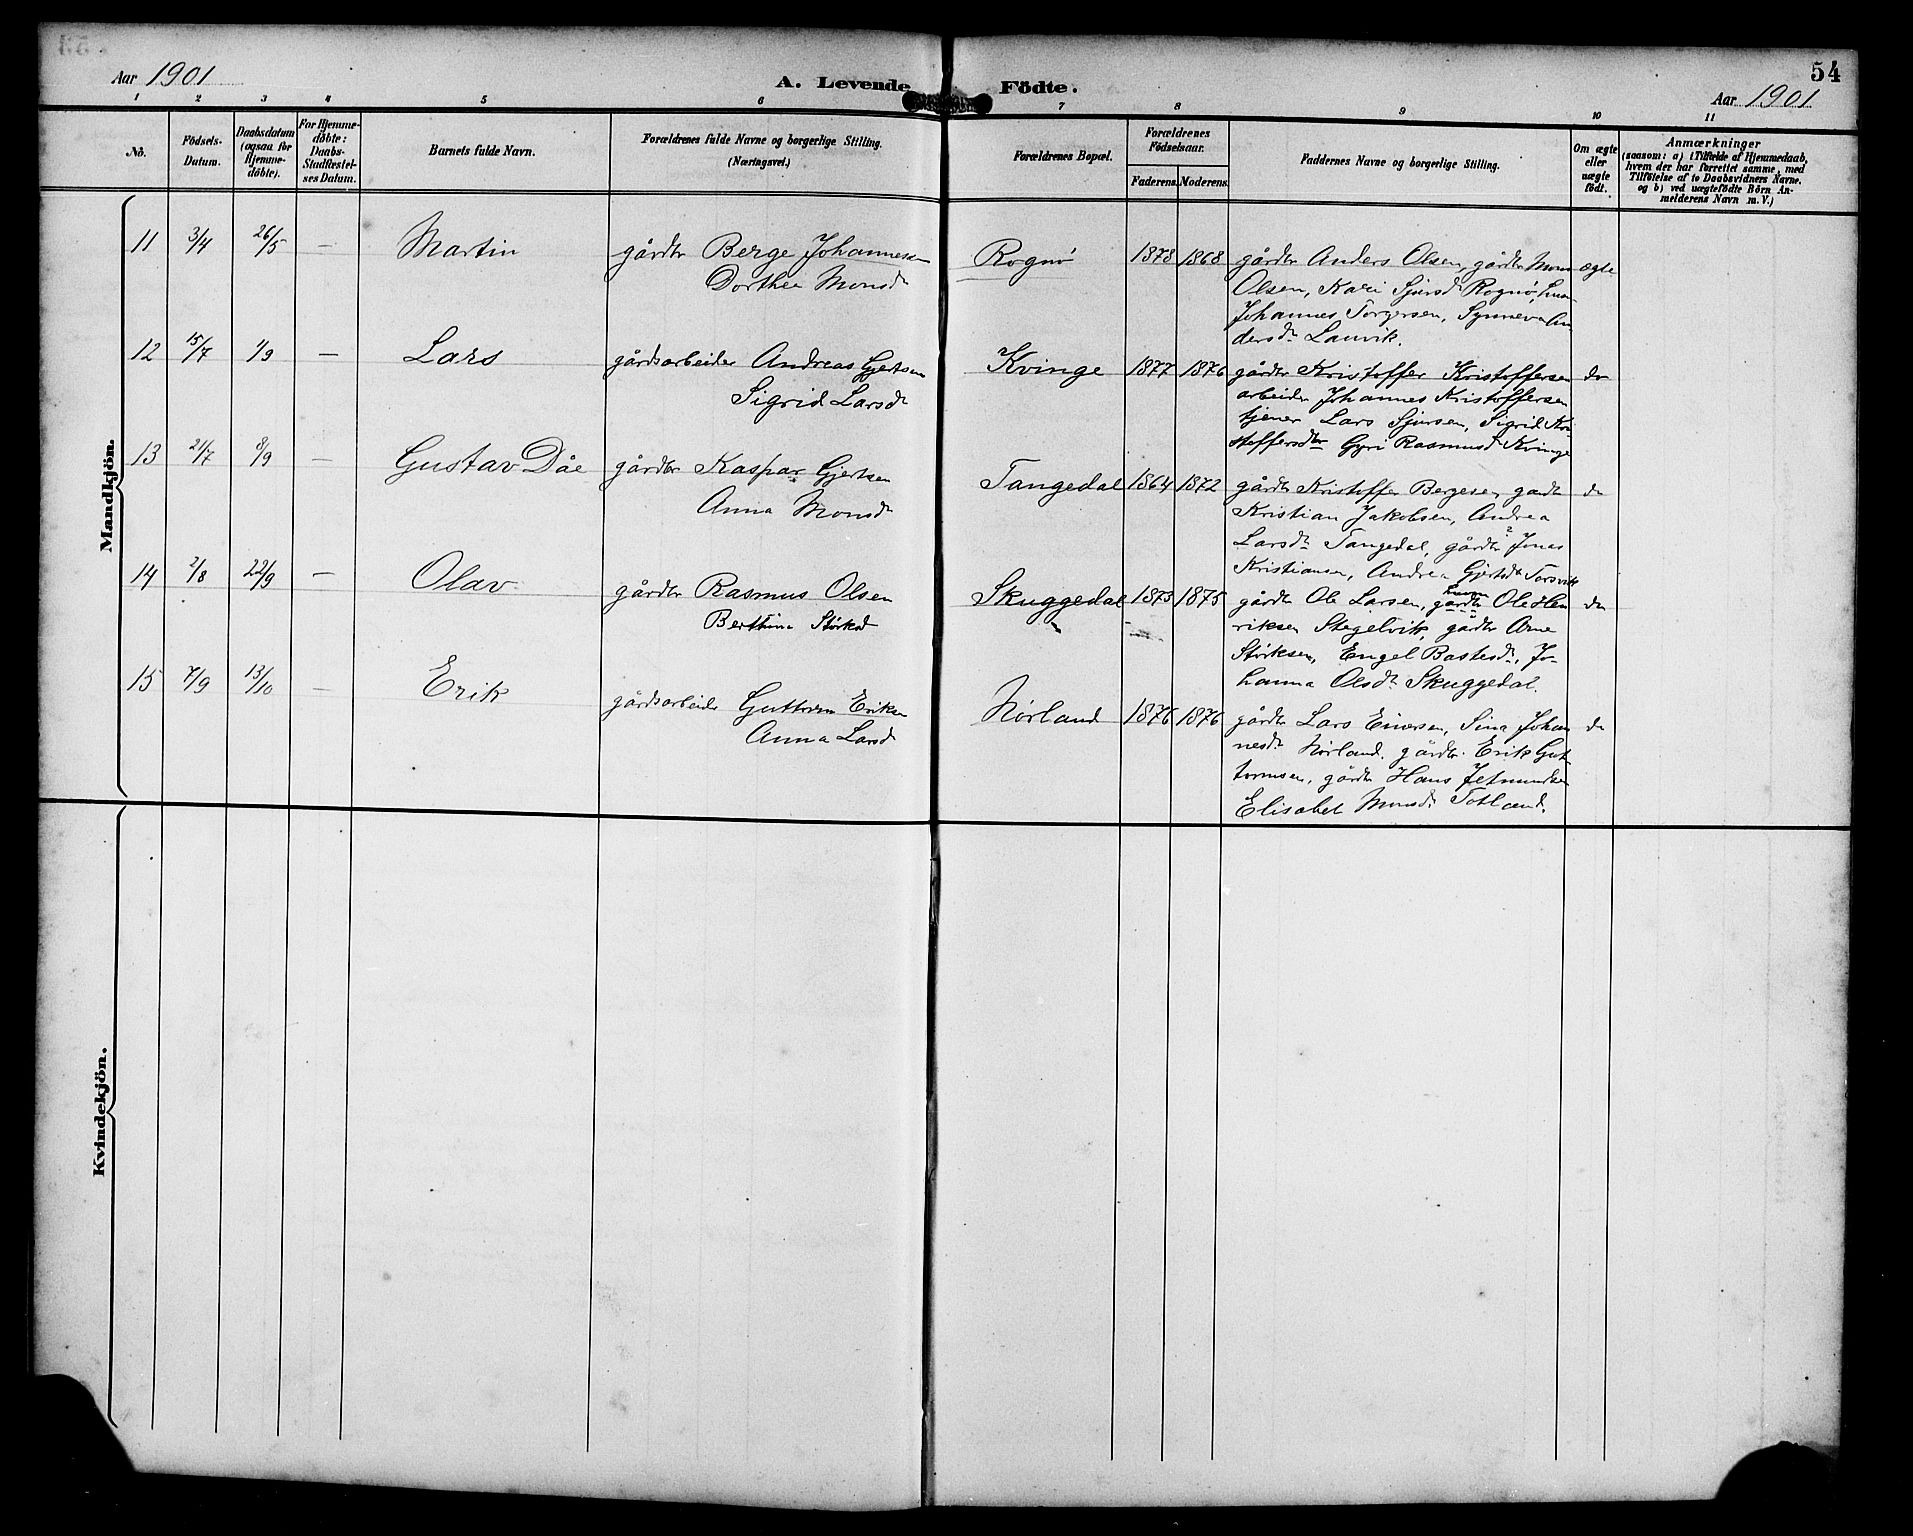 54
Aar 1901
A. Levende Födte.
Aar 1901
1 2 3 4 5 6 7 8 9 10 11
No.
Födsels-
Datum.
Daabsdatum
(ogsaa for
Hjemme-
döbte).
For Hjemme-
döbte:
Daabs-
Stadfæstel-
ses Datum.
Barnets fulde Navn.
Forældrenes fulde Navne og borgerlige Stilling.
(Næringsvei.)
Forældrenes Bopæl.
Forældrenes
Födselsaar.
Faderens. Moderens.
Faddernes Navne og borgerlige Stilling.
Om ægte
eller
uægte
födt.
Anmærkninger
(saasom: a) i Tilfælde af Hjemmedaab,
hvem der har forrettet samme, med
Tilföielse af to Daabsvidners Navne,
og b) ved uægtefödte Börn An-
melderens Navn m. V.)
Mandkjön.
11 3/4 26/5 — Martin
gårdbr Berge Johannesen
Dorthea Monsdr
Rognø 1878 1868
gårdbr Anders Olsen, gårdbr Mons
Olsen, Kari Sjursdr Rognø,
Johannes Torgersen, Synneva An-
dersdr Lauvik.
ægte
12 15/7 1/9 — Lars
gårdsarbeider Andreas Gjertsen
Sigrid Larsdr
Kvinge 1877 1876
gårdbr Kristoffer Kristoffersen
arbeider Johannes Kristoffersen
tjener Lars Sjursen, Sigrid Kri-
stoffersdtr Gyri Rasmusdr Kvinge
do
13 21/7 8/9 — Gustav Dåe
gårdbr Kaspar Gjertsen
Anna Monsdr
Tangedal 1864 1872
gårdbr Kristoffer Bergesen gårdbr
Kristian Jakobsen, Andrea
Larsdr Tangedal, gårdbr Jonas
Kristiansen, Andrea Gjertsdr Torsvik
do
14 2/8 22/9 — Olav
gårdbr Rasmus Olsen
Berthina Størksd
Skuggedal 1873 1875
gårdbr Ole Larsen, gårdbr Ole Hen
riksen Stegelvik, gårdbr Arne
Størksen, Engel Bastesdr, Jo-
hanna Olsdr Skuggedal.
do
15 7/9 13/10 — Erik
gårdsarbeider Guttorm Eriksen
Anna Larsd
Nørland 1876 1876
gårdbr Lars Einersen, Sina Johan
nesdr Nørland, gårdbr Erik Gut
tormsen, gårdbr Hans Jetmundsen
Elisabet Monsdr Totland.
do
Kvindekjön.